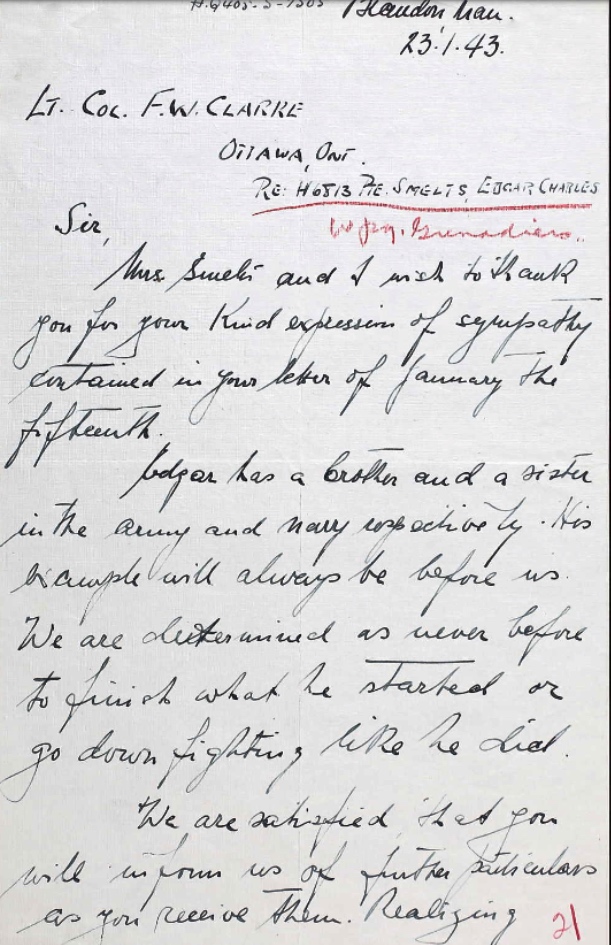 H.Q405-S-7505
Brandon Man.
23.1.43.
Lt. Col. F.W. Clarke
Ottawa, Ont.
Re: H6813 Pte. Smelts, Edgar Charles
Wpg. Grenadiers.
Sir,
Mrs. Smelts and I wish to thank
you for your kind expression of sympathy
contained in your letter of January the
fifteenth.
Edgar has a brother and a sister
in the army and navy respectively. His
example will always be before us.
We are determined as never before
to finish what he started or
go down fighting like he did.
We are satisfied that you
will inform us of further particulars
as you receive them. Realizing
21